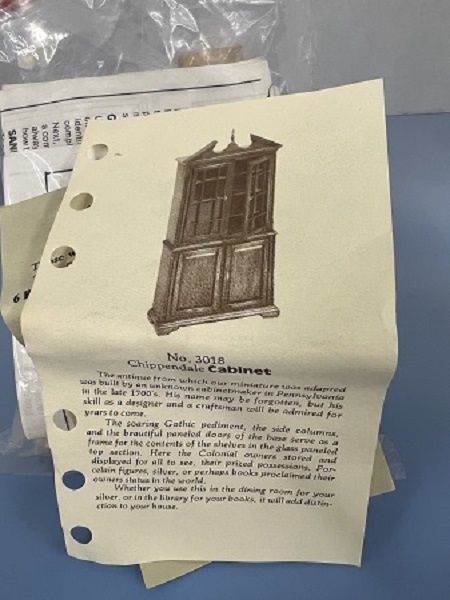 SAND
No. 3018
Chippendale Cabinet
The antique from which our miniature was adapted
was built by an unknown cabinetmaker in Pennsylvania
in the late 1700's. His name may be forgotten, but his
skill as a designer and a craftsman will be admired for
years to come.
The soaring Gothic pediment, the side columns,
and the beautiful paneled doors of the base serve as a
frame for the contents of the shelves in the glass paneled
top section. Here the Colonial owners stored and
displayed for all to see, their prized possessions. Por-
celain figures, silver, or perhaps books proclaimed their
owners status in the world.
Whether you use this in the dining room for your
silver, or in the library for your books, it will add distin-
ction to your house.